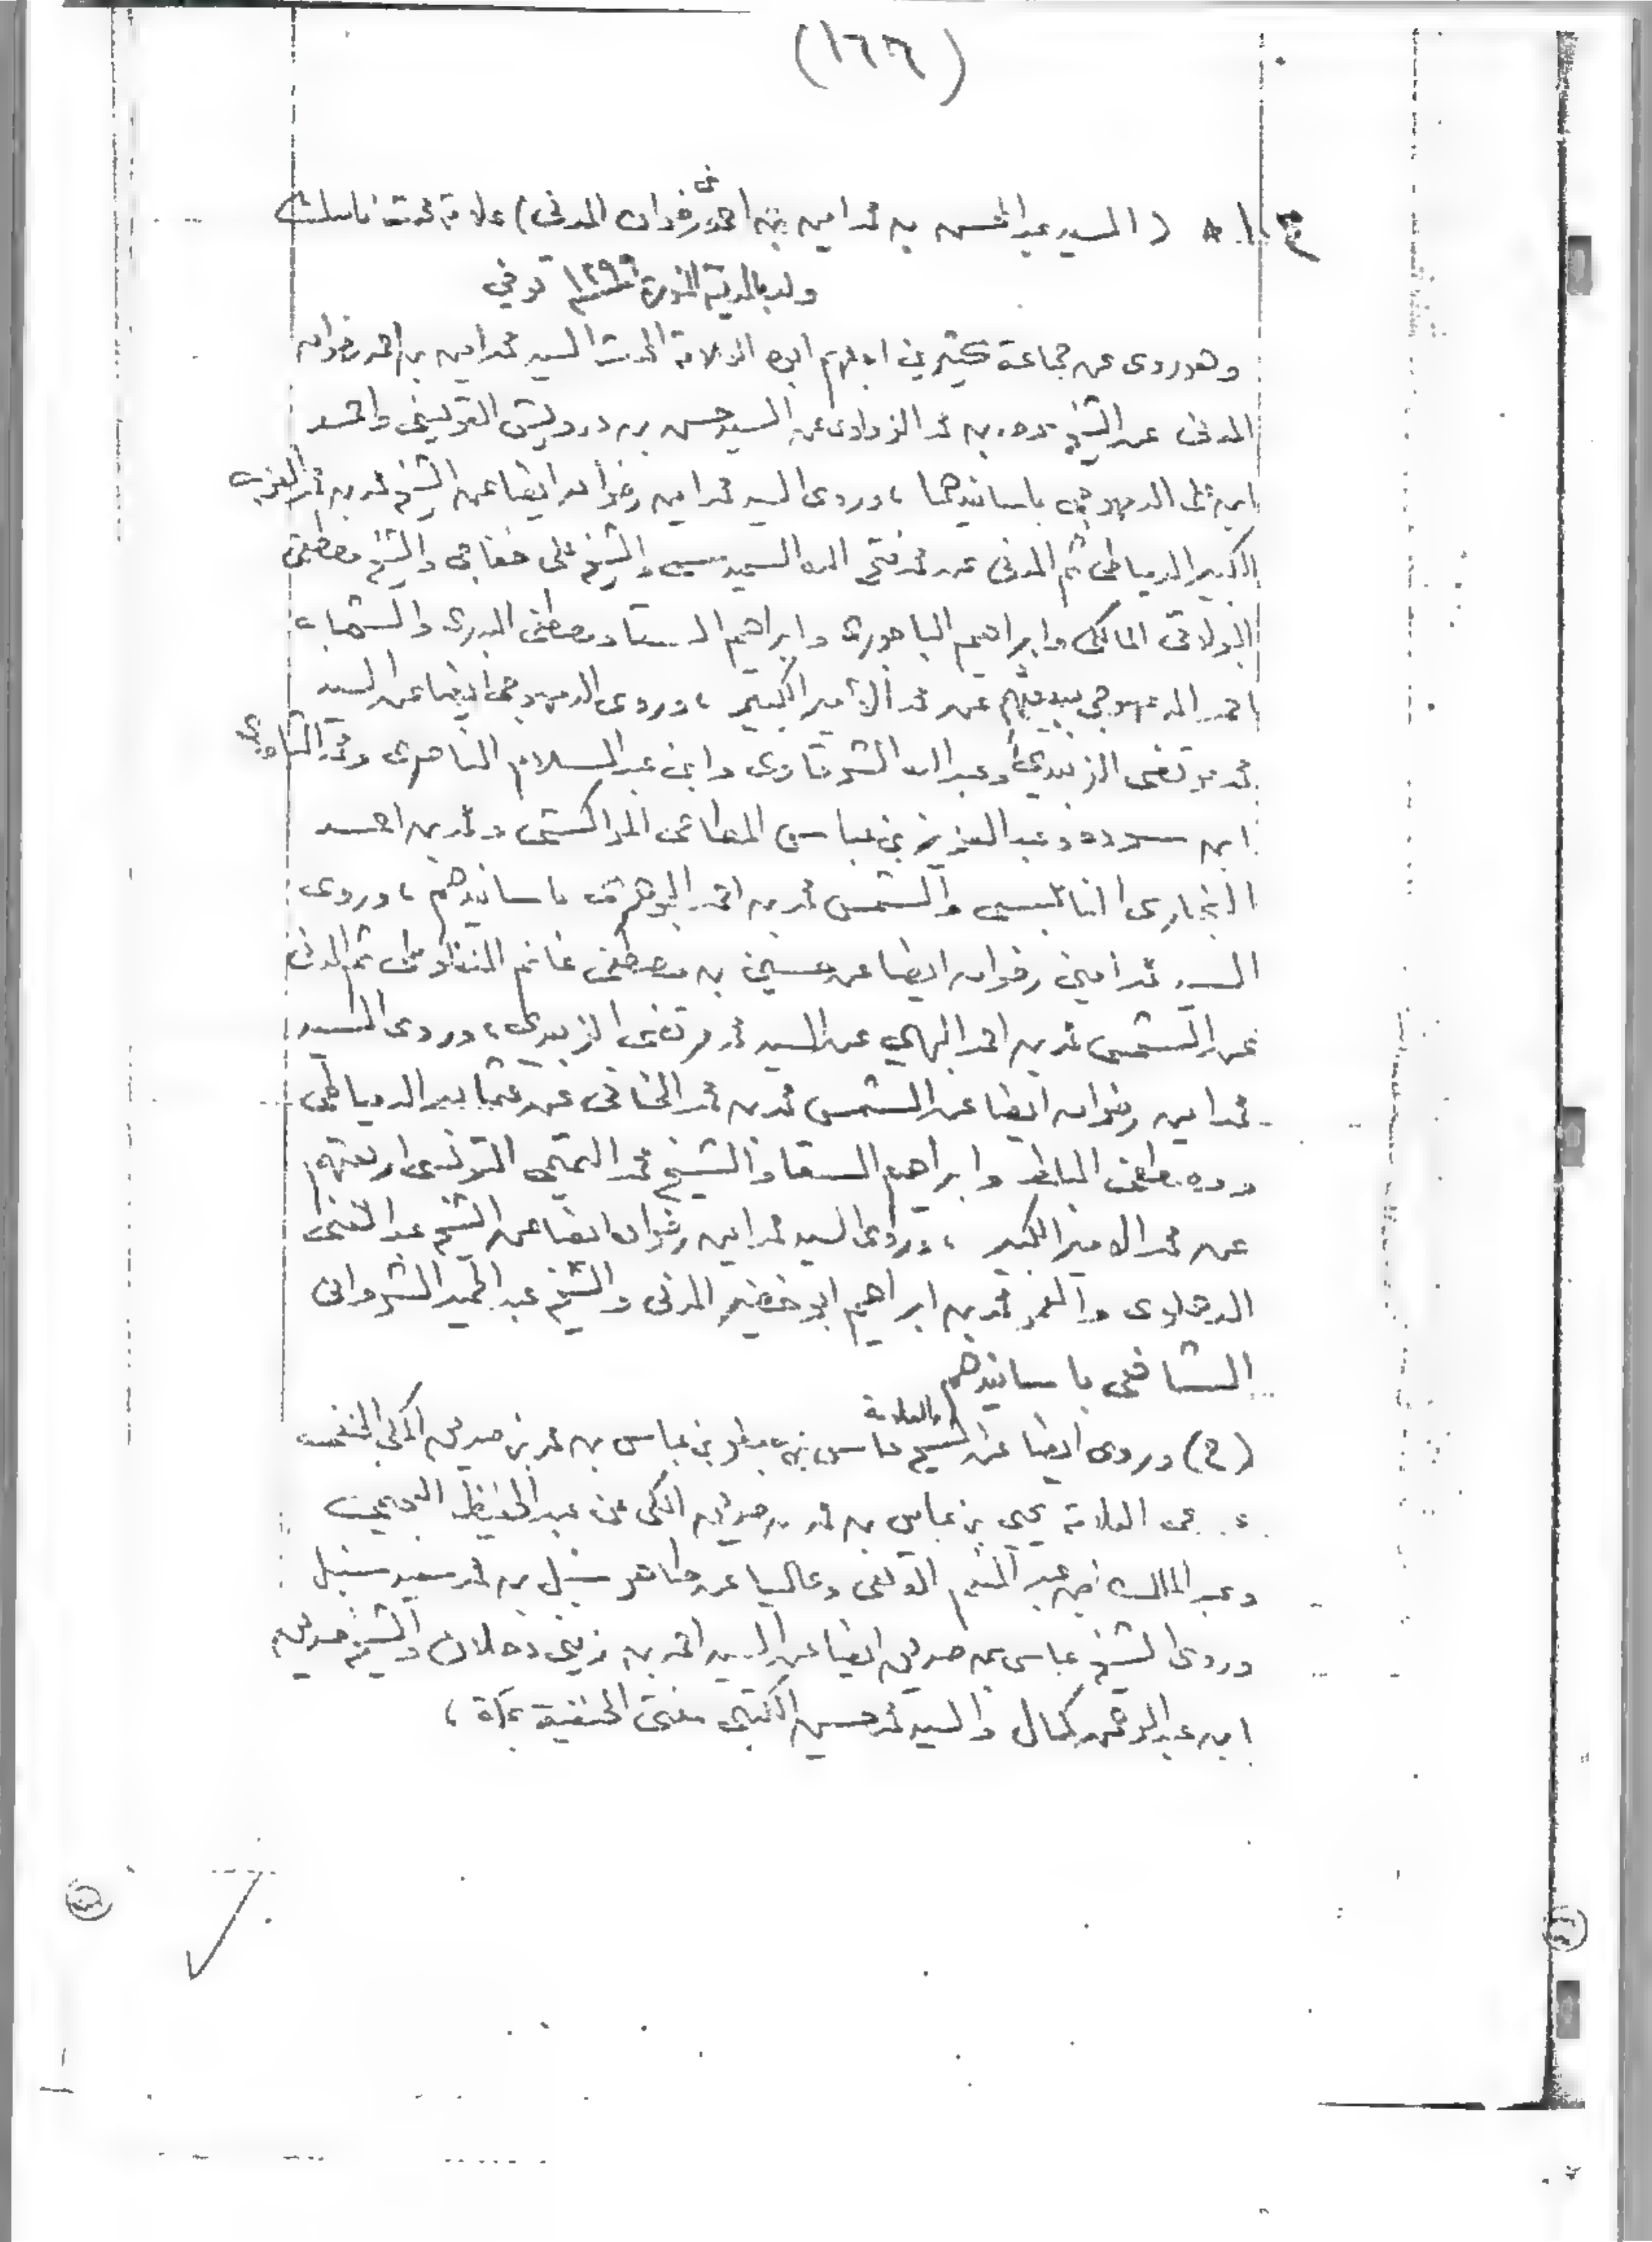 (١٦٦)
( السيد عبد المحسن بن محمد امين بن احمد رضوان المدني ) علامة محدث ناسك
ولد بالمدينة المنورة ١٢٩٩ توفي
وهو روى عن جماعة كثيرين اولهم ابوه العلامة المحدث السيد محمد امين بن احمد رضوان
المدني عن الشيخ بن محمد عن السيد حسن بن درويش القويسني واحمد
ابن علي الدمهوجي باسانيدهما ، وروى السيد محمد امين رضوان ايضا عن الشيخ محمد بن محمد العزب
الكبير الدمياطي ثم المدني عن محمد فتح الله السمديسي والشيخ علي خفاجي والشيخ مصطفى
البولاقي المالكي وابراهيم الباجوري وابراهيم السقا ومصطفى البدري والشهاب
احمد الدمهوجي سبعتهم عن محمد الأمير الكبير ، وروى الدمهوجي ايضا عن السيد
محمد مرتضى الزبيدي وعبد الله الشرقاوي وابن عبد السلام الناصري ومحمد التاودي
ابن سوده وعبد العزيز بن عباس المطاعي المراكشي ومحمد بن احمد
البخاري النابلسي والشمس محمد بن احمد الجوهري باسانيدهم ، وروى
السيد محمد امين رضوان ايضا عن حسين بن مصطفى غانم المنفلوطي ثم المدني
عن الشمس محمد بن احمد البهي عن السيد محمد مرتضى الزبيدي ، وروى السيد
محمد امين رضوان ايضا عن الشمس محمد بن محمد الخاني عن عثمان الدمياطي
ومصطفى المبلط وابراهيم السقا والشيخ محمد التميمي التونسي اربعتهم
عن محمد الامير الكبير ، وروى السيد محمد امين رضوان ايضا عن الشيخ عبد الغني
الدهلوي والمعمر محمد بن ابراهيم ابو خضير المدني والشيخ عبد الحميد الشرواني
الشافعي باسانيدهم
(ح) وروى ايضا عن الشيخ والعلامة عباس بن جعفر بن عباس بن محمد بن صديق المكي الحنفي
عن العلامة يحيى بن عباس بن محمد بن صديق المكي عن عبد الحفيظ العجيمي
وعبد الملك بن عبد المنعم القلعي وعاليا عن طاهر سنبل بن محمد سعيد سنبل
وروى الشيخ عباس بن صديق ايضا عن السيد احمد بن زيني دحلان والشيخ صديق
ابن عبد الرحمن كمال والسيد محمد حسين الكتبي مفتي الحنفية بمكة ،